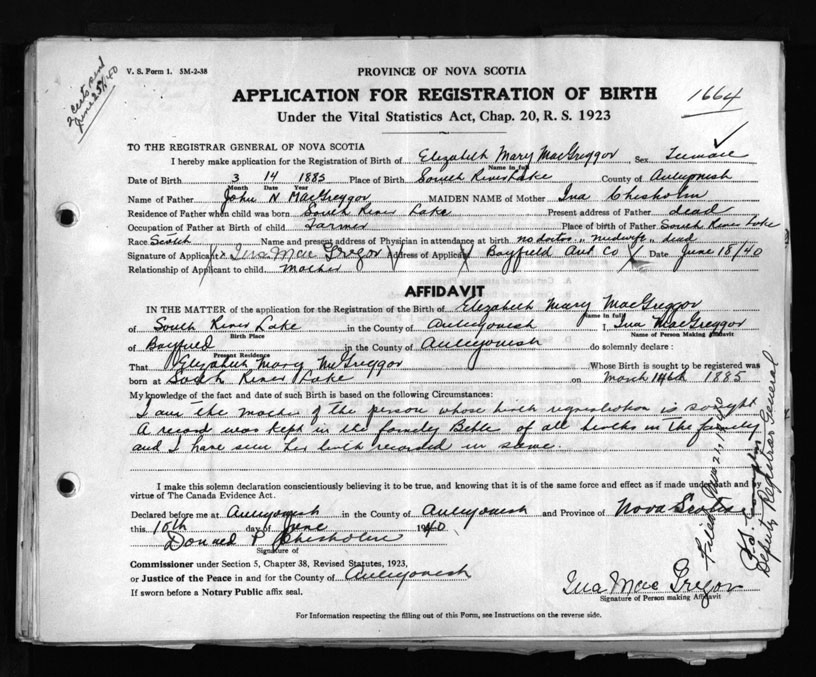 V. S. Form 1. 5M-2-38
2 certs send
June 25/40
PROVINCE OF NOVA SCOTIA
APPLICATION FOR REGISTRATION OF BIRTH
1664
Under the Vital Statistics Act, Chap. 20, R. S. 1923
TO THE REGISTRAR GENERAL OF NOVA SCOTIA
I hereby make application for the Registration of Birth of Elizabeth Mary MacGreggor Sex Female
Name in full
Date of Birth 3 14 1885 Place of Birth South River Lake County of Antigonish
Month Date Year
Name of Father John N MacGreggor MAIDEN NAME of Mother Ina Chisholm
Residence of Father when child was born South River Lake Present address of Father dead
Occupation of Father at Birth of child Farmer Place of birth of Father South River Lake
Race Scotch Name and present address of Physician in attendance at birth no doctor, "midwife" dead
Signature of Applicant Ina Mac Gregor Address of Applicant Bayfield Ant Co Date June 18/40
Relationship of Applicant to child mother
AFFIDAVIT
IN THE MATTER of the application for the Registration of the Birth of Elizabeth Mary MacGreggor
Name in full
of South River Lake in the County of Antigonish I, Ina MacGreggor
Birth Place Name of Person Making Affidavit
of Bayfield in the County of Antigonish do solemnly declare:
Present Residence
That Elizabeth Mary McGreggor Whose Birth is sought to be registered was
born at South River Lake on March 14th 1885
My knowledge of the fact and date of such Birth is based on the following Circumstances:
I am the mother of the person whose birth registration is sought
A record was kept in the family Bible of all births in the family
and I have seen her birth recorded in same.
I make this solemn declaration conscientiously believing it to be true, and knowing that it is of the same force and effect as if made under oath and by
virtue of The Canada Evidence Act.
Declared before me at Antigonish in the County of Antigonish and Province of Nova Scotia
this 18th day of June 1940
Donald P Chisholm
Signature of
Commissioner under Section 5, Chapter 38, Revised Statutes, 1923,
or Justice of the Peace in and for the County of Antigonish
If sworn before a Notary Public affix seal.
Ina Mac Gregor
Signature of Person making Affidavit
For Information respecting the filling out of this Form, see Instructions on the reverse side.
Filed June 21, 1940
Deputy Registrar General